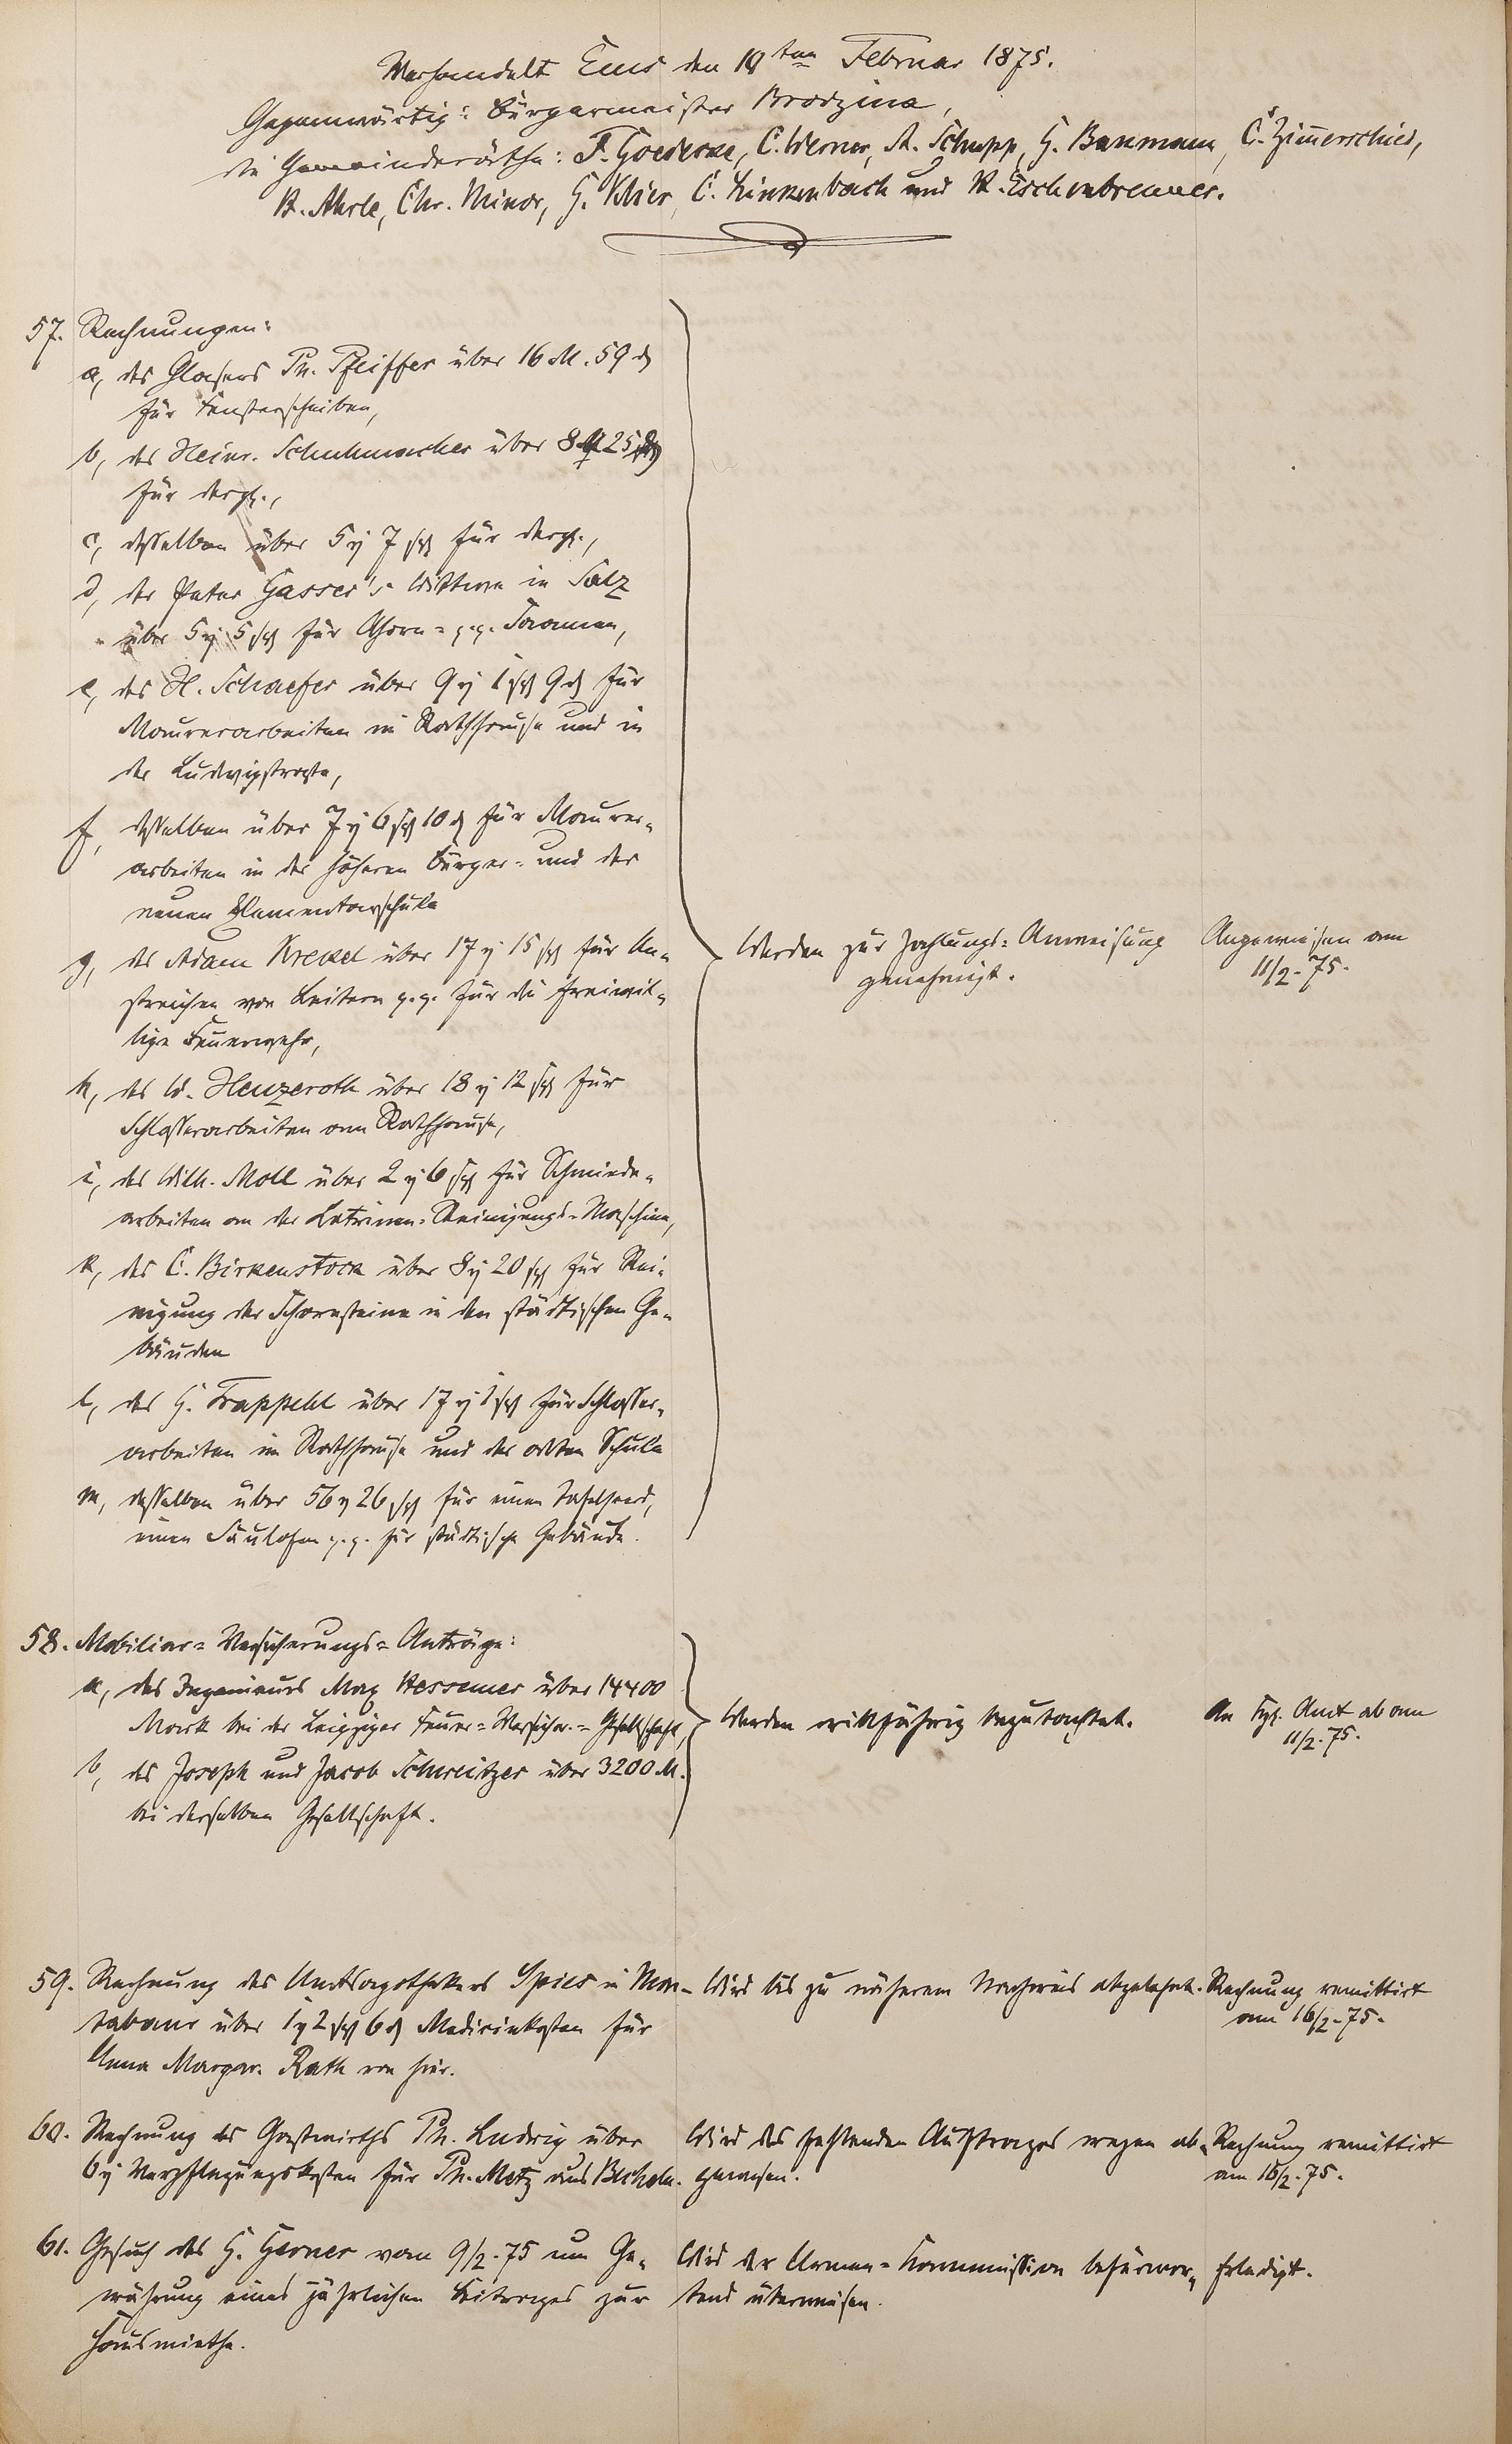 Verhandelt Ems den 10ten Februar 1875.
Gegenwärtig: Bürgermeister Brodzina,
die Gemeinderäthe: F. Goedecke, C. Werner, A. Schupp, G. Baumann, C. Zimerschied,
K. Ahrle, Chr. Minor, G. Vhier, C. Linkenbach und K. Eschenbrenner.
57. Rechnungen:
a, des Glasers Ph. Pfeiffer über 16 M. 59 ₰
für Fensterscheiben,
b, des Heinr. Schuhmacher über 8 25
für dergl.,
c, desselben über 5 7 sgr für dergl.,
d, der Peter Gasser's Wittwe in Salz
über 5 5 sgr für Ahorn= p.p. Saamen,
e, des H. Schaefer über 9 1 sgr 9 ₰ für
Maurerarbeiten im Rathhause und in
der Ludwigstraße,
f, desselben über 7 6 sgr 10 ₰ für Maurer-
arbeiten in der höheren Bürger= und der
neuen Elementarschule
g, des Adam Krekel über 17 15 sgr für An-
streichen von Leitern p.p. für die freiwil-
lige Feuerwehr,
h, des W. Henzeroth über 18 12 sgr für
Schlosserarbeiten am Rathhause,
i, des Wilh. Moll über 2 6 sgr für Schmiede-
arbeiten an der Latrinen-Reinigungs-Maschine,
k, des C. Birkenstock über 8 20 sgr für Rei-
nigung der Schornsteine in den städtischen Ge-
bäuden
l, des G. Trappehl über 17 1 sgr für Schlosser-
arbeiten im Rathhause und der alten Schule
m, desselben über 56 26 sgr für einen Tafelherd,
einen Säulofen p.p. für städtische Gebäude.
Werden zur Zahlungs=Anweisung
genehmigt.
Angewiesen am
11/2.75.
58. Mobiliar=Versicherungs=Anträge:
a, des Ingenieurs Max Hessemer über 14400
Mark bei der Leipziger Feuer=Versicher.=Gesellschaft,
b, des Joseph und Jacob Schweitzer über 3200 M.
bei derselben Gesellschaft.
Werden willfährig begutachtet.
An Kgl. Amt ab am
11/2.75.
59. Rechnung des Amtsapothekers Spies in Mon-
tabaur über 1 2 sgr 6 ₰ Medicinkosten für
Anna Margar. Rath von hier.
Wird bis zu näherem Nachweis abgelehnt.
Rechnung remittirt
am 16/2.75.
60. Rechnung des Gastwirths Ph. Ludwig über
6 Verpflegungskosten für Ph. Metz aus Becheln.
Wird des fehlenden Auftrages wegen ab-
gewiesen.
Rechnung remittirt
am 16/2.75.
61. Gesuch des G. Gerner vom 9/2.75 um Ge-
währung eines jährlichen Beitrages zur
Hausmiethe.
Wird der Armen=Kommission befürwor-
tend überwiesen.
Erledigt.